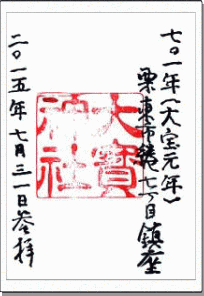 七〇一年(大宝元年)
栗東市綣七丁目鎮座
大寳
神社
二〇一五年七月三一日参拝